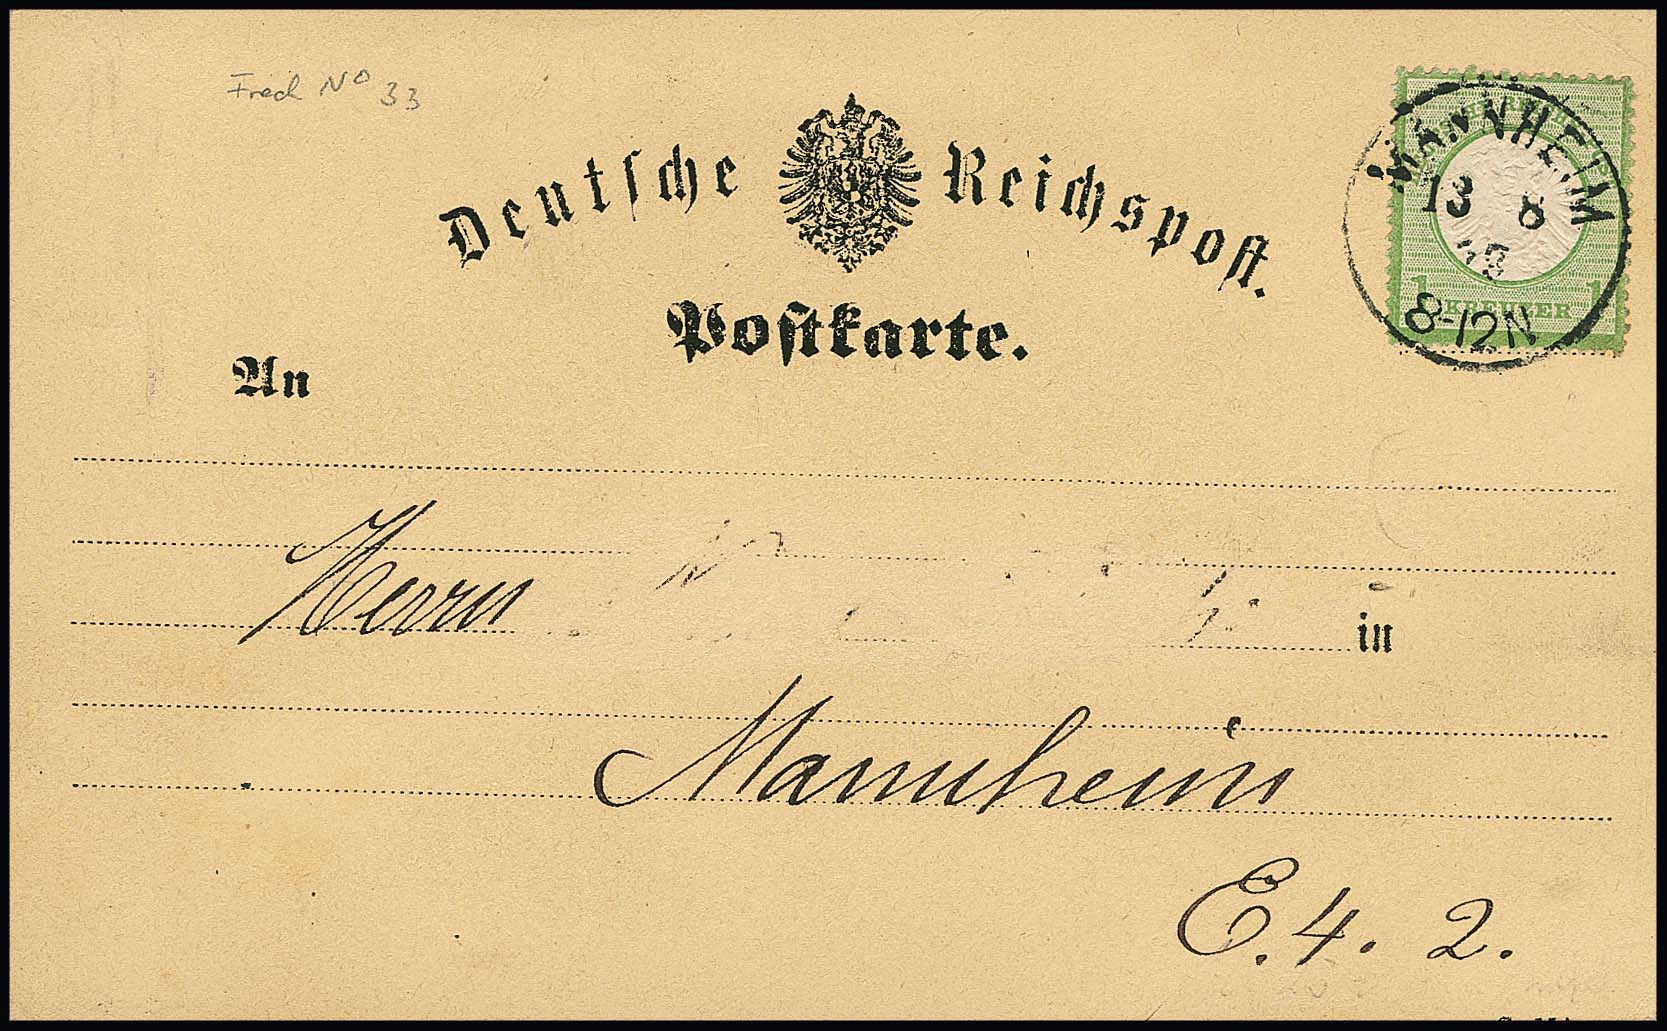 Fred No 33
Deutsche Reichspost.
Postkarte.
MANNHEIM
13 8
8-12N
1 KREUZER 1
An
Herrn
in
Mannheim
E. 4. 2.